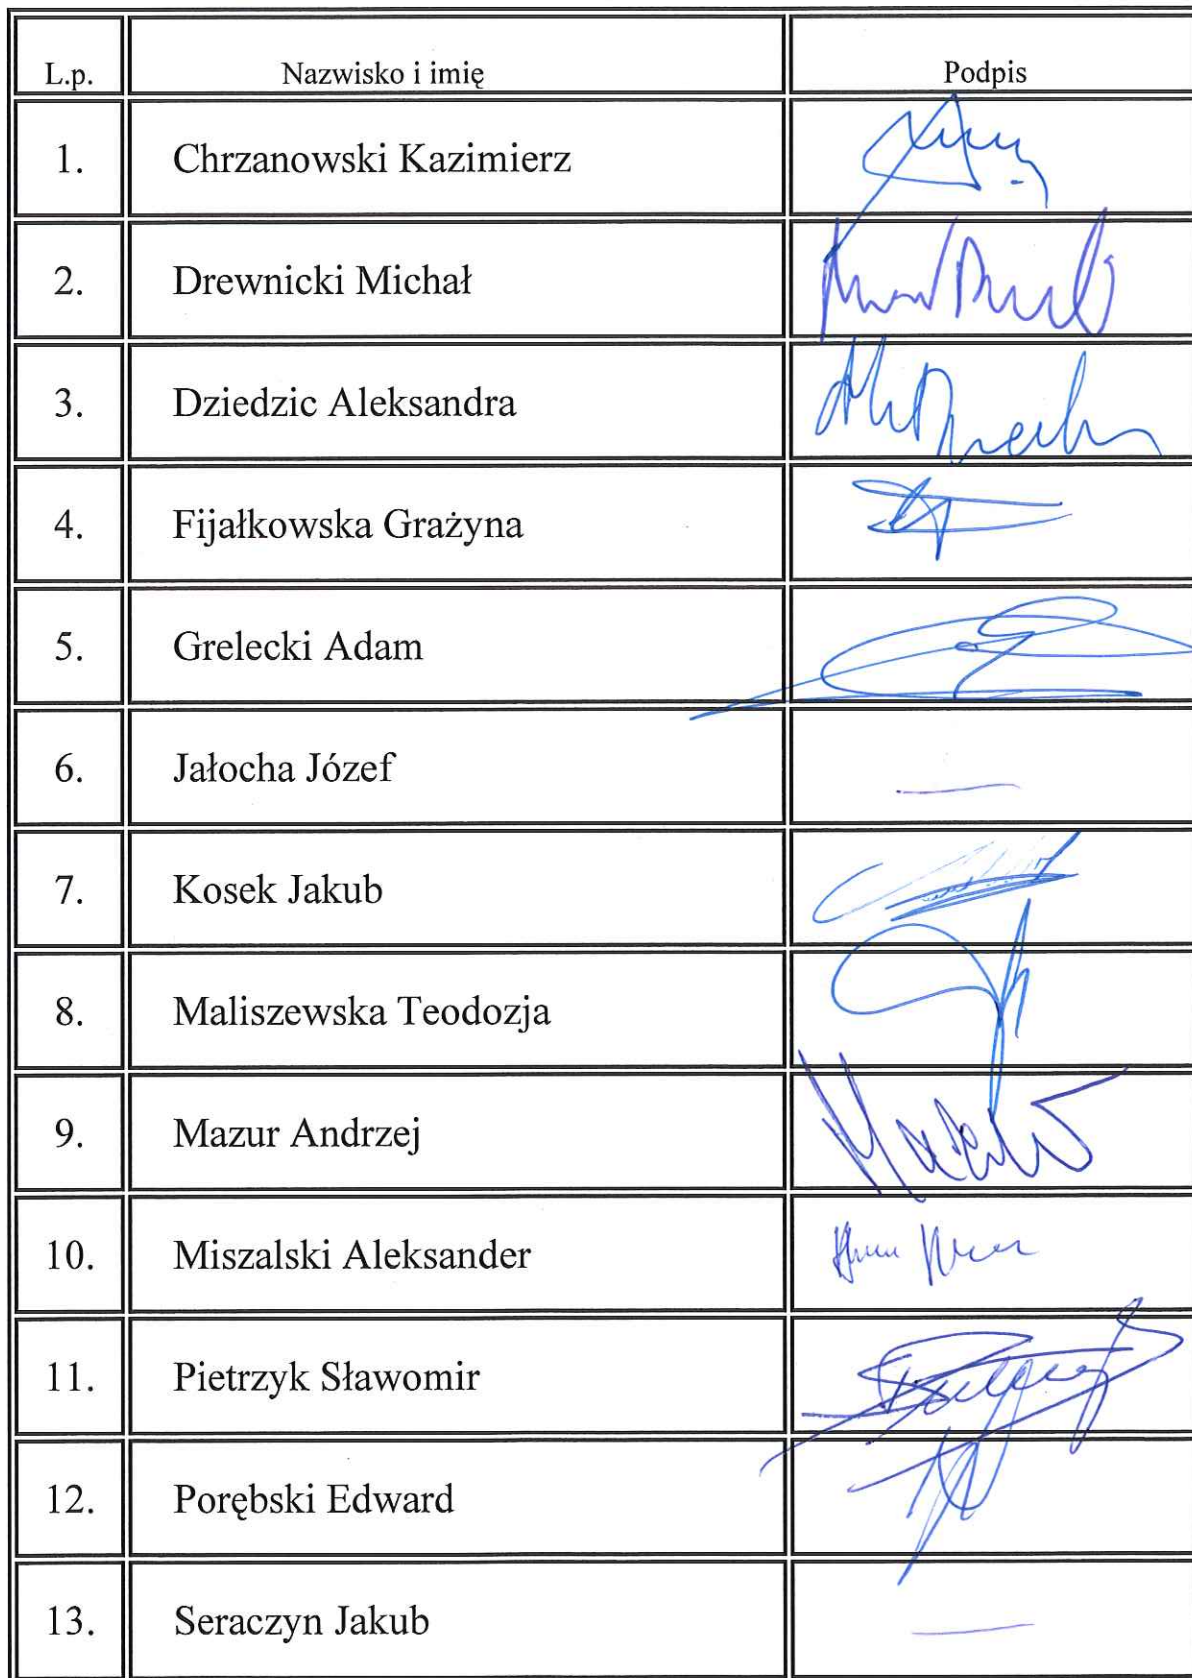 L.p. Nazwisko i imię Podpis
1. Chrzanowski Kazimierz
2. Drewnicki Michał
3. Dziedzic Aleksandra
4. Fijałkowska Grażyna
5. Grelecki Adam
6. Jałocha Józef —
7. Kosek Jakub
8. Maliszewska Teodozja
9. Mazur Andrzej
10. Miszalski Aleksander
11. Pietrzyk Sławomir
12. Porębski Edward
13. Seraczyn Jakub —